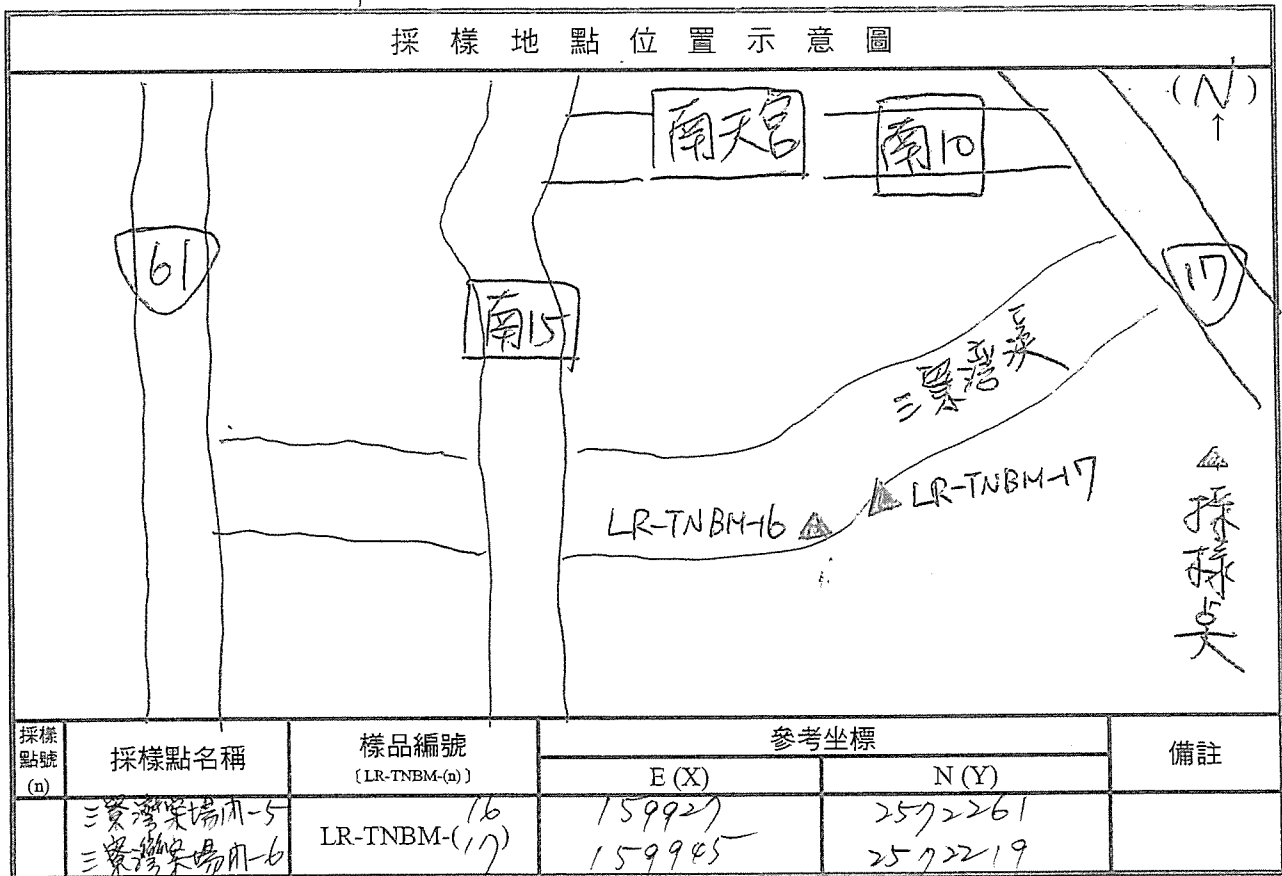 採樣地點位置示意圖
(N)
↑
南天宮
南10
61
17
南15
三寮灣溪
LR-TNBM-16
LR-TNBM-17
▲採樣点
採樣點號(n)
採樣點名稱
樣品編號
〔LR-TNBM-(n)〕
參考坐標
E (X)
N (Y)
備註
三寮灣案場 -5
三寮灣案場 -6
LR-TNBM-(16
17)
159927
2572261
159945
2572219